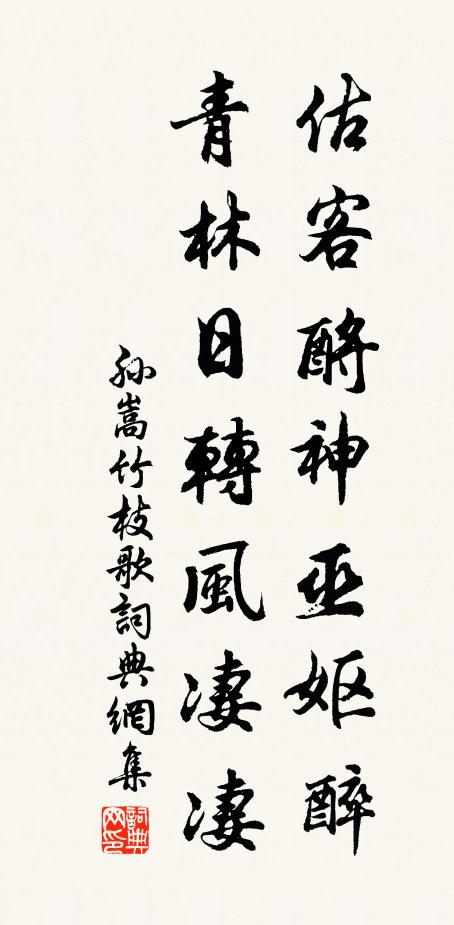 估客酹神巫妪醉
青林日轉風凄凄
孙嵩竹枝歌詞典網集
詞典网印